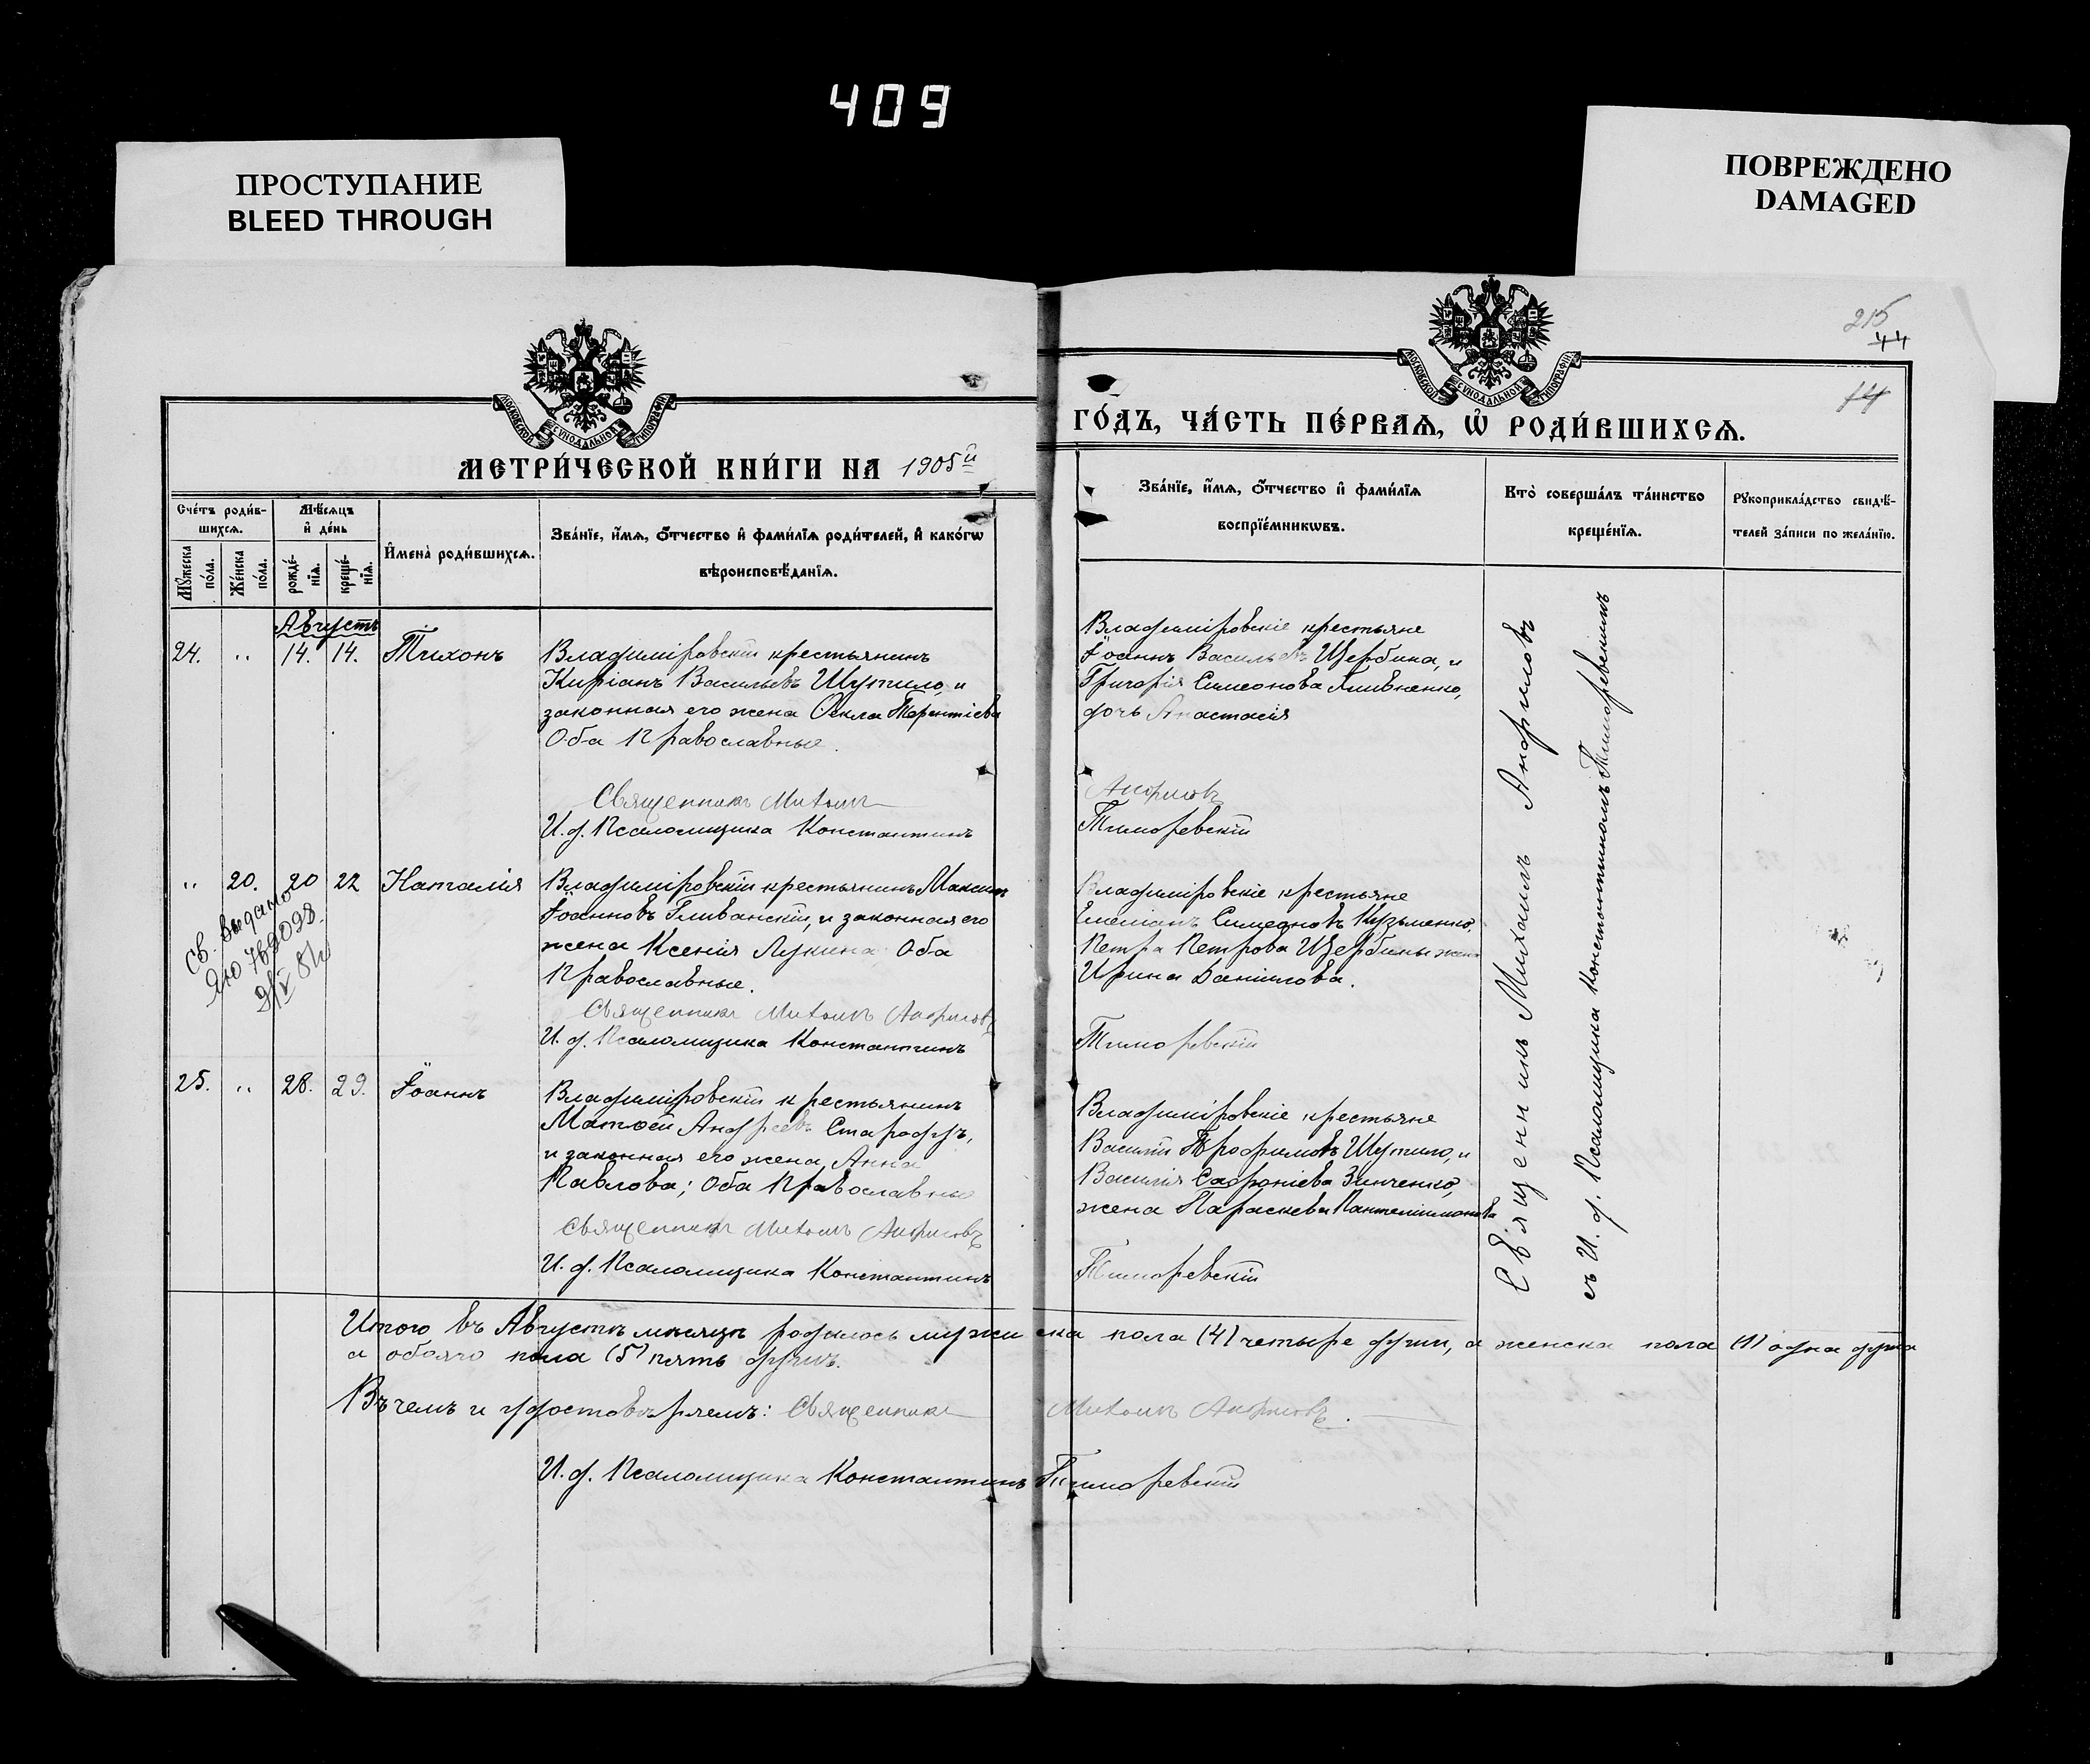 409
ПРОСТУПАНИЕ
BLEED THROUGH
ПОВРЕЖДЕНО
DAMAGED
215
44
14
МОСКОВСКОЙ СѴНОДАЛЬНОЙ ТИПОГРАФІИ
МОСКОВСКОЙ СѴНОДАЛЬНОЙ ТИПОГРАФІИ
МЕТРИ́ЧЕСКОЙ КНИ́ГИ НА 1905й
ГО́ДЪ, ЧА́СТЬ ПЕ́РВАѦ, Ѡ҆ РОДИ́ВШИХСѦ.
Сче́тъ роди́в-
шихсѧ.
Мꙋ́жеска по́ла.
Же́нска по́ла.
Мѣ́сѧцъ
и҆ де́нь
рожде́-нїѧ.
креще́-нїѧ.
И҆мена̀ роди́вшихсѧ.
Зва́нїе, и҆́мѧ, ѻ҆́тчество и҆ фами́лїѧ роди́телей, и҆ како́гѡ
вѣроисповѣ́данїѧ.
Зва́нїе, и҆́мѧ, ѻ҆́тчество и҆ фами́лїѧ
воспрїе́мникѡвъ.
Кто̀ соверша́лъ та́инство
креще́нїѧ.
Рꙋкоприкла́дство свидѣ́-
телей за́писи по жела́нїю.
Августъ
24. „ 14. 14. Тихонъ
Владимировскій крестьянинъ
Киріанъ Васильевъ Шутило, и
законная его жена Ѳекла Терентіева
Оба Православные.
Священникъ Михаилъ
И. д. Псаломщика Константинъ
Владиміровскіе крестьяне
Іоаннъ Васильевъ Щербина, и
Григорія Симеонова
дочь Анастасія
Андріевъ
Тиморевскій
„ 20. 20 22 Наталія
Владиміровскій крестьянинъ Максимъ
Іоанновъ Гливанскій, и законная его
жена Ксенія Лукина; Оба
Православные.
Священникъ Михаилъ
И. д. Псаломщика Константинъ
Св. выдано
Владиміровскіе крестьяне
Емеліанъ Симеоновъ Кузьменко,
Петра Петрова Щербины жена
Ирина Даніилова.
Тиморевскій
25. „ 28. 29. Іоаннъ
Владиміровскій крестьянинъ
Матѳей Андреевъ Стародубъ,
и законная его жена Анна
Павлова; Оба Православные
Священникъ Михаилъ
И. д. Псаломщика Константинъ
Владиміровскіе крестьяне
Василій Трофимовъ Шутило, и
Василія Софроніева Зинченко,
жена Параскева Пантелеимонова
Тиморевскій
Священникъ Михаилъ
съ И. д. Псаломщика Константиномъ Тиморевскимъ
Итого въ Августѣ мѣсяцѣ родилось мужеска пола (4) четыре души, а женска пола (1) одна душа
а обоего пола (5) пять душъ.
Въ чемъ и удостовѣряемъ: Священникъ Михаилъ
И. д. Псаломщика Константинъ Тиморевскій